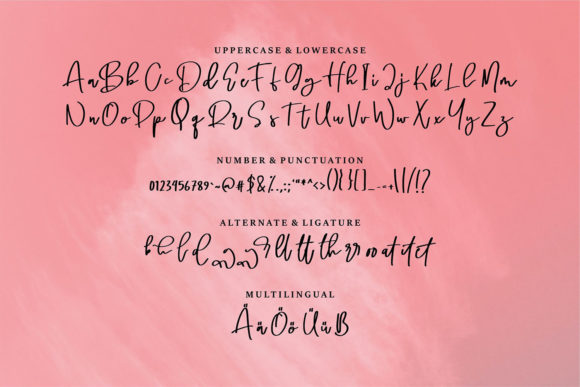 UPPERCASE & LOWERCASE
Aa Bb Cc Dd Ee Ff Gg Hh Ii Jj Kk Ll Mm
Nn Oo Pp Qq Rr Ss Tt Uu Vv Ww Xx Yy Zz
NUMBER & PUNCTUATION
0123456789`~@#$&%.,:;'"*^<>(){}[]_-=+|\/!?
ALTERNATE & LIGATURE
b h l d ll tt th rr oo at it et
MULTILINGUAL
Ää Öö Üü ß